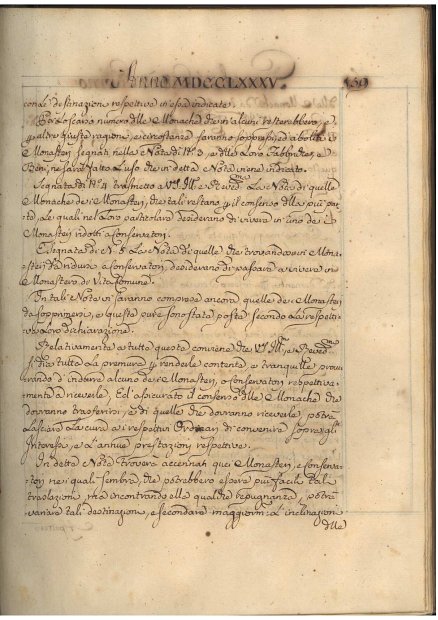 Anno MDCCLXXXV. 159
con de destinazioni respettive in essa indicate.
Per lo scarso numero delle Monache che in alcuni resterebbero, e
altre giuste ragioni, e circostanze saranno soppressi ed aboliti i
Monasteri segnati nella Nota di N.° 3, e delle Loro Fabbriche, e
Beni, ne sarà fatto l'uso che in detta Nota viene indicato.
Segnata di N.° 4 trasmetto a V.S. Ill. e Rev. La Nota di quelle
Monache dei Monasteri, che tali restano il consenso della più par-
te, Le quali nel Loro particolare desiderano di vivere in uno dei
Monasteri ridotti a Conservatori.
E segnata di N. 5 La Nota di quelle che trovandosi in Mona-
steri da ridursi a Conservatori desiderano di passare a vivere in
Monastero di Vita Comune.
In tali Note vi saranno comprese ancora quelle dei Monasteri
da sopprimersi, e queste pure sono state poste secondo Le respetti-
ve Loro dichiarazioni.
Relativamente a tutte queste conviene che V.S. Ill. e Rev.
si dia tutta La premura di renderle contente, e tranquille procu-
rando d'indurre alcuno dei Monasteri, o Conservatori respettiva-
mente a riceverle, Ed assicurato il consenso delle Monache che
dovranno trasferirsi, e di quelle che dovranno riceverle, potrà
Lasciare La cura ai respettivi Ordinari di convenire sopra gl'
Interessi, e L'annue prestazioni respettive.
In dette Note troverà accennati quei Monasteri, e Conserva-
tori nei quali sembra, che potrebbero essere più facili tali
traslazioni, ma incontrando ella qualche repugnanza, potrà
variare tali destinazioni, e secondare maggiormente L'inclinazioni
delle